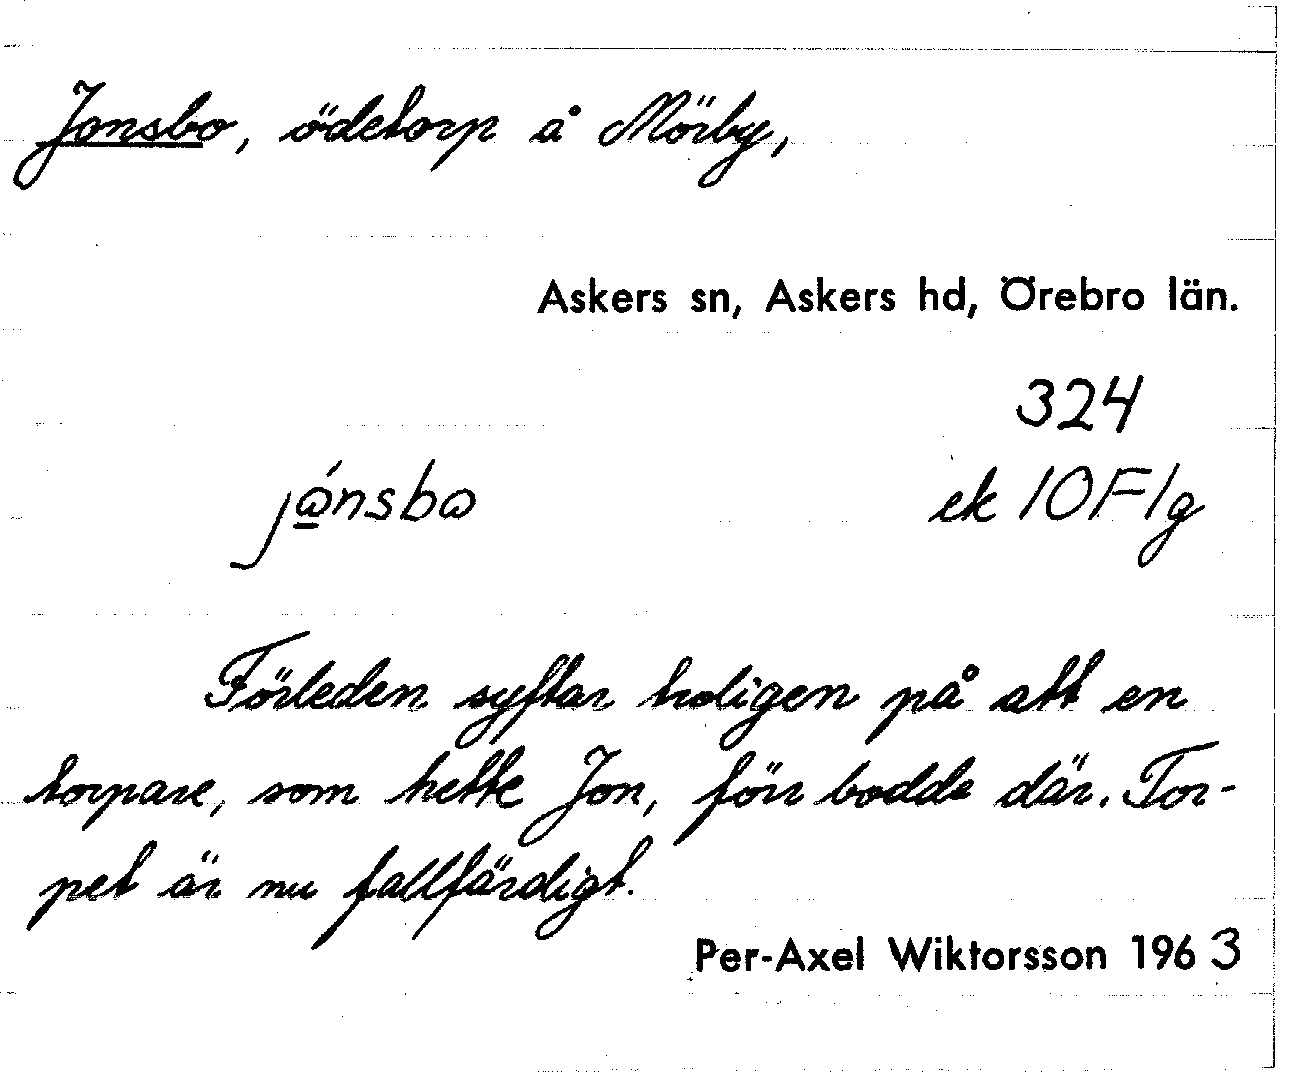 Jonsbo, ödetorp å Mörby,
Askers sn, Askers hd, Örebro län.
324
ek 10F1g
Förleden syftar troligen på att en
torpare, som hette Jon, förr bodde där. Tor-
pet är nu fallfärdigt.
Per-Axel Wiktorsson 1963